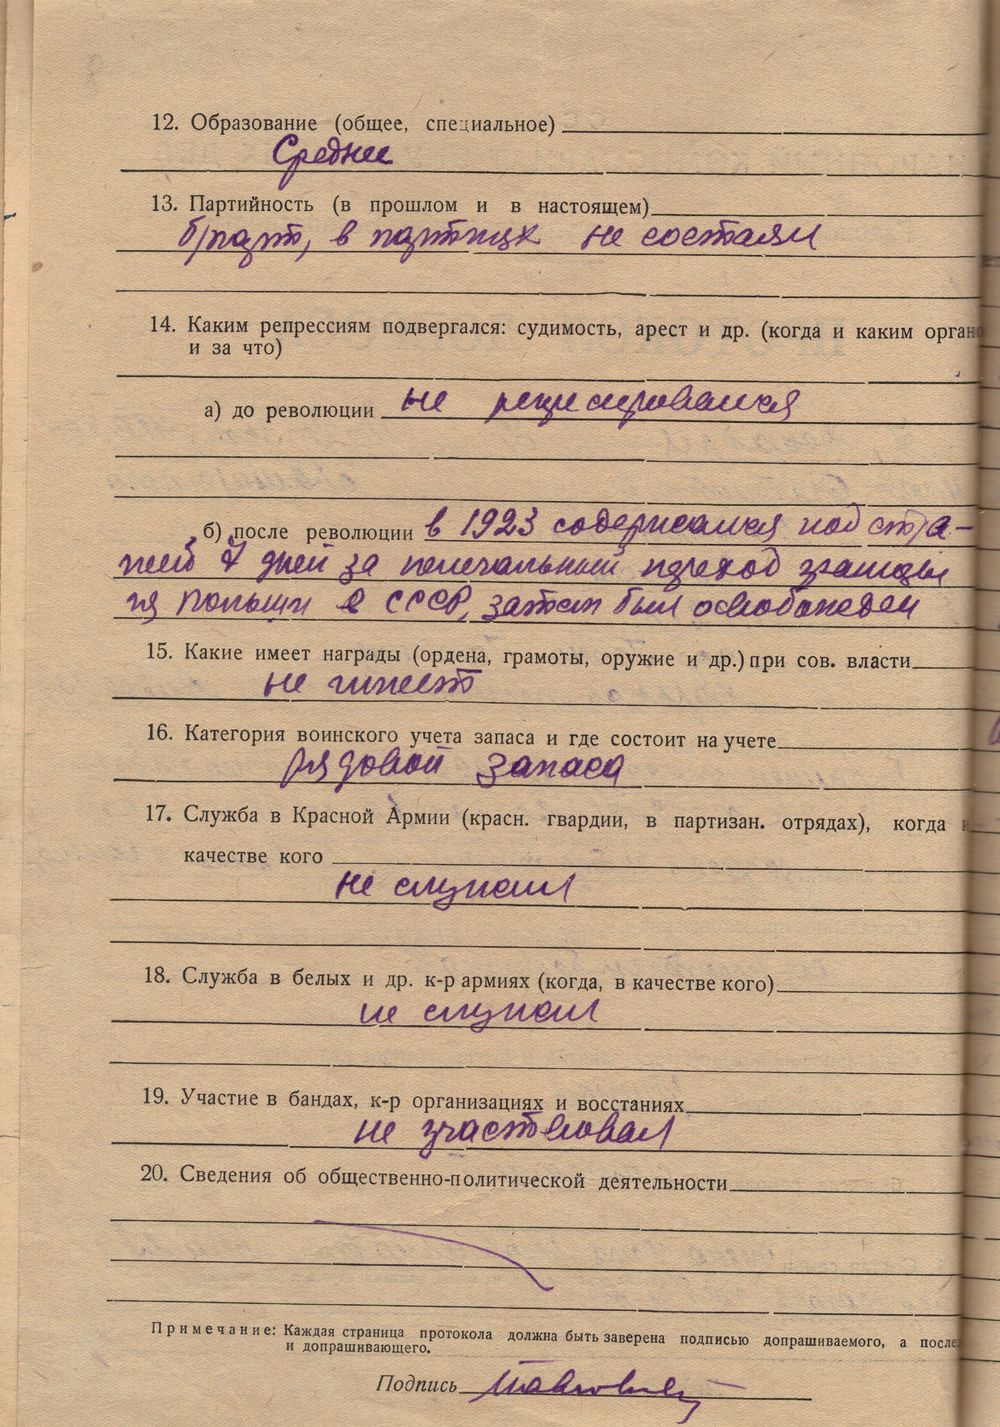 12. Образование (общее, специальное)
Среднее
13. Партийность (в прошлом и в настоящем)
б/парт, в партиях не состоял
14. Каким репрессиям подвергался: судимость, арест и др. (когда и каким органо
и за что)
а) до революции не репрессировался
б) после революции в 1923 содержался под стра-
жей 7 дней за нелегальный переход границы
из Польши в СССР, затем был освобожден
15. Какие имеет награды (ордена, грамоты, оружие и др.) при сов. власти
не имеет
16. Категория воинского учета запаса и где состоит на учете
рядовой запаса
17. Служба в Красной Армии (красн. гвардии, в партизан. отрядах), когда
качестве кого
не служил
18. Служба в белых и др. к-р армиях (когда, в качестве кого)
не служил
19. Участие в бандах, к-р организациях и восстаниях
не участвовал
20. Сведения об общественно-политической деятельности
Примечание: Каждая страница протокола должна быть заверена подписью допрашиваемого, а после
и допрашивающего.
Подпись